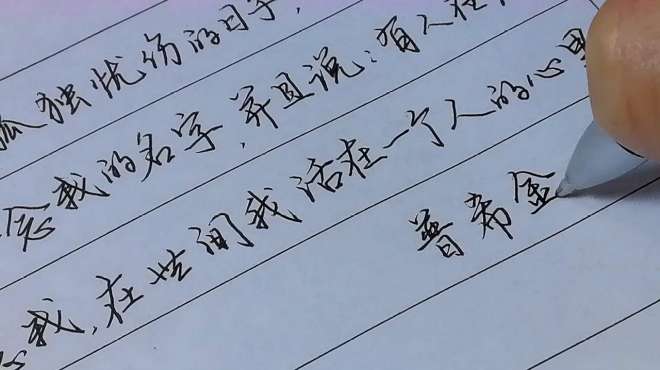 孤独忧伤的日子，
念我的名字，并且说：有人在
我，在世间我活在一个人的心里
普希金